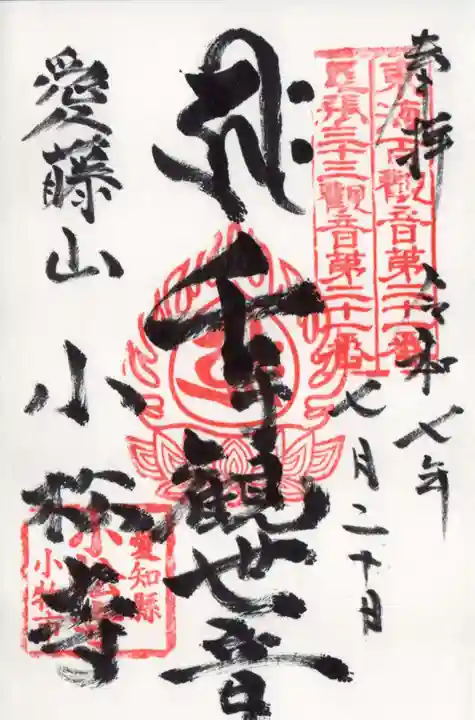 奉拝 令和七年
七月二十日
東海百觀音第二十一番
尾張三十三觀音第二十一番
千手観世音
愛藤山 小松寺
愛知縣
小松寺
小牧市